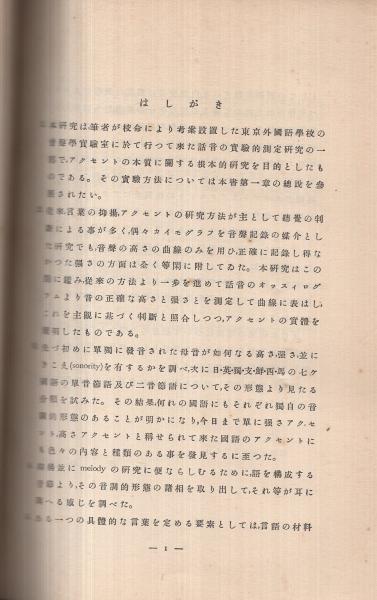 はしがき
本研究は,筆者が校命により考案設置した東京外國語學校の
音聲學實驗室に於て行つて來た話音の實驗的測定研究の一
部で,アクセントの本質に關する根本的研究を目的としたも
のである。その實驗方法については本書第一章の總說を參
照されたい。
從來,言葉の抑揚,アクセントの研究方法が主として聽覺の判
斷による事が多く,偶々カイモグラフを音聲記錄の媒介とし
た硏究でも,音聲の高さの曲線のみを用ひ,正確に記錄し得な
かつた强さの方面は全く等閑に附してゐた。本硏究はこの
に鑑み,從來の方法より一步を進めて話音のオッスィログ
ラムより音の正確な高さと强さとを測定して曲線に表はし,
これを主觀に基づく判斷と照合しつつ,アクセントの實體を
明したものである。
先づ初めに單獨に發音された母音が如何なる高さ,强さ,並に
きこえ(sonority)を有するかを調べ,次に日・英・獨・支・鮮・西・馬の七ケ
國語の單音節語及び二音節語について,その形態より見たる
分類を試みた。その結果,何れの國語にもそれぞれ獨自の音
調的形態のあることが明かになり,今日まで單に强さアクセ
ント,高さアクセントと稱せられて來た國語のアクセントに
も色々の內容と種類のある事を發見するに至つた。
並に melody の研究に便ならしむるために,語を構成する
音節より,その音調的形態の諸相を取り出して,それ等が耳に
へる感じを調べた。
ある一つの具體的な言葉を定める要素としては,言語の材料
— 1 —